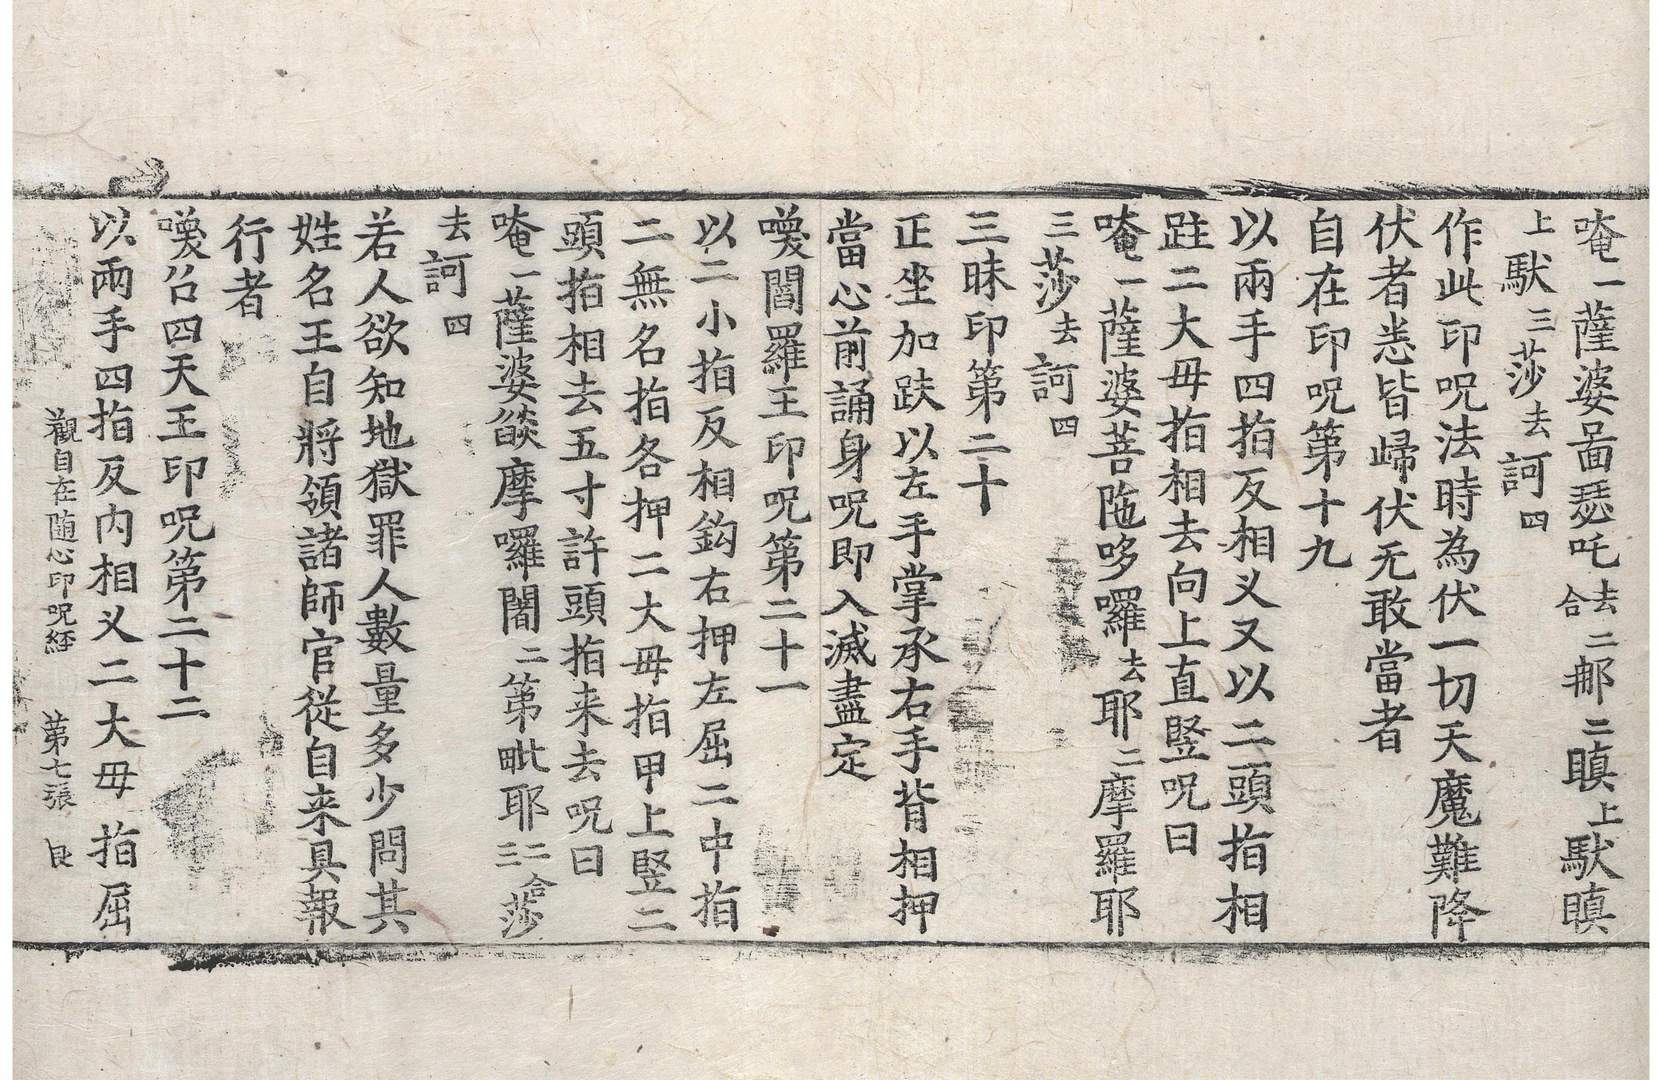 唵一薩婆啚瑟吒去合二那二瞋上馱瞋
上馱三莎去訶四
作此印呪法時為伏一切天魔難降
伏者悉皆歸伏无敢當者
自在印呪第十九
以兩手四指反相义又以二頭指相
跓二大毋指相去向上直竪呪曰
唵一薩婆菩陁哆囉去耶二摩羅耶
三莎去訶四
三昧印第二十
正坐加趺以左手掌承右手背相押
當心前誦身呪即入滅盡定
㗚閻羅王印呪第二十一
以二小指反相鈎右押左屈二中指
二無名指各押二大毋指甲上竪二
頭指相去五寸許頭指来去呪曰
唵一薩婆燄摩囉闍二第毗耶二合三莎
去訶四
若人欲知地獄罪人數量多少問其
姓名王自將領諸師官従自来具報
行者
㗚召四天王印呪第二十二
以兩手四指反内相义二大毋指屈
觀自在随心印呪經 第七張 良